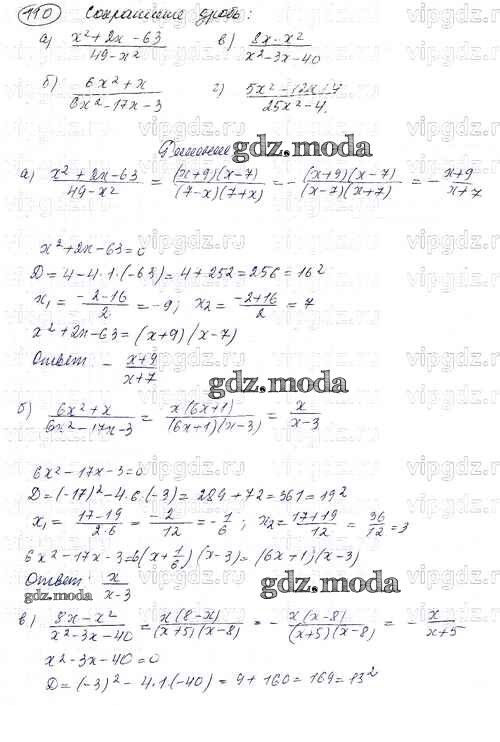 110 Сократите дробь:
а) (x²+2x-63)/(49-x²) в) (8x-x²)/(x²-3x-40)
б) (6x²+x)/(6x²-17x-3) г) (5x²-12x+4)/(25x²-4)
gdz.moda
а) (x²+2x-63)/(49-x²) = (x+9)(x-7)/(7-x)(7+x) = -(x+9)(x-7)/(x-7)(x+7) = -(x+9)/(x+7)
x²+2x-63=0
D=4-4·1·(-63)=4+252=256=16²
x₁=(-2-16)/2=-9; x₂=(-2+16)/2=7
x²+2x-63=(x+9)(x-7)
Ответ: -(x+9)/(x+7)
gdz.moda
б) (6x²+x)/(6x²-17x-3) = x(6x+1)/(6x+1)(x-3) = x/(x-3)
6x²-17x-3=0
D=(-17)²-4·6·(-3)=289+72=361=19²
x₁=(17-19)/(2·6)=-2/12=-1/6; x₂=(17+19)/12=36/12=3
6x²-17x-3=6(x+1/6)(x-3)=(6x+1)(x-3)
Ответ: x/(x-3)
gdz.moda gdz.moda
в) (8x-x²)/(x²-3x-40) = x(8-x)/(x+5)(x-8) = -x(x-8)/(x+5)(x-8) = -x/(x+5)
x²-3x-40=0
D=(-3)²-4·1·(-40)=9+160=169=13²